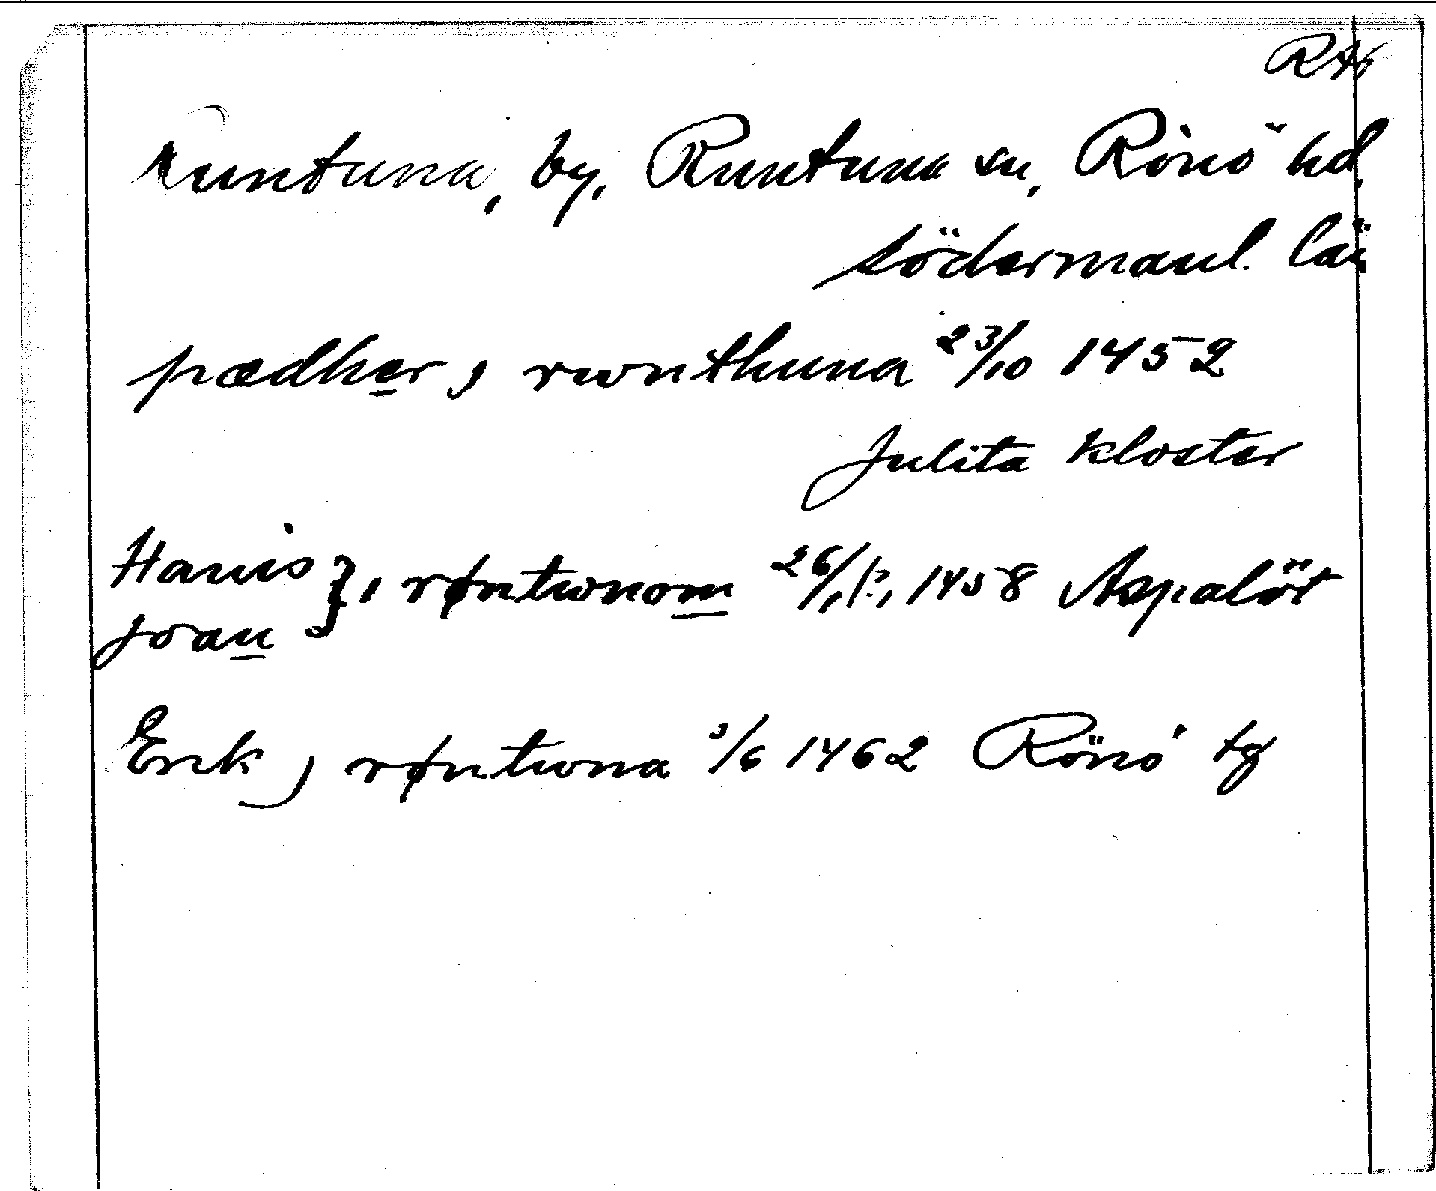 RA
Runtuna, by, Runtuna sn, Rönö hd,
Södermanl. län
pædher, rwnthuna 23/10 1452
Julita kloster
Hanis
Joan }, røntwnom 26/1(?), 1458 Aspalöt
Erik, røntwna 3/6 1462 Rönö tg